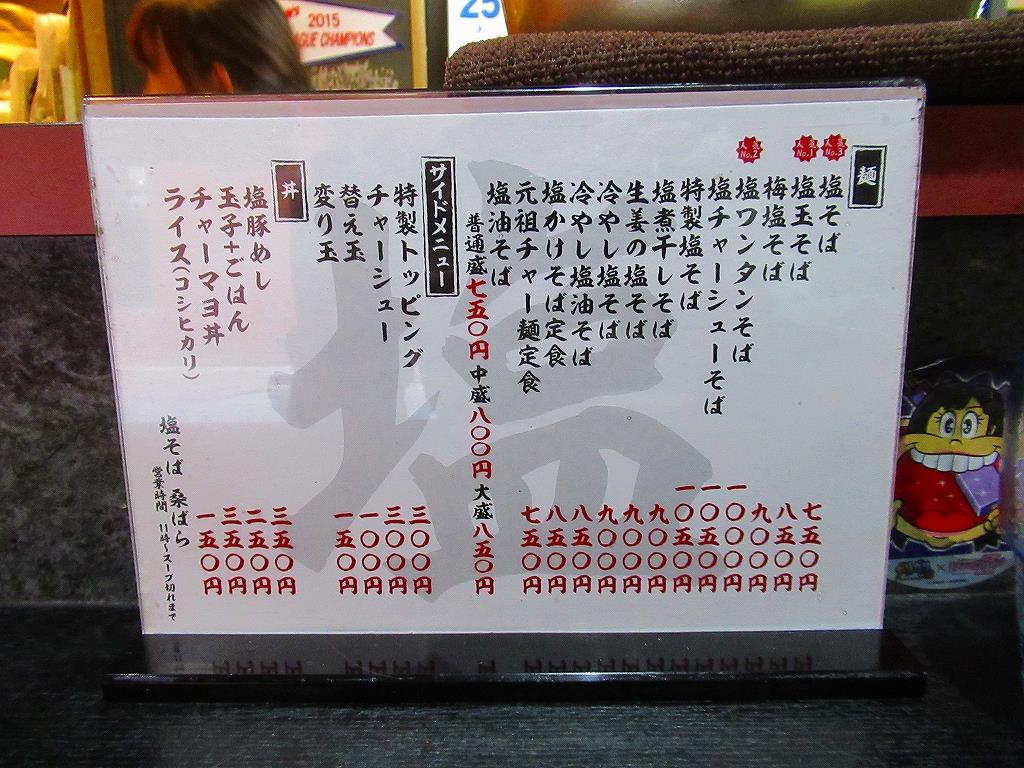 2015
GUE CHAMPIONS
25
麺
人気No.3
塩そば 七五〇円
人気No.1
塩玉そば 八五〇円
梅塩そば 九〇〇円
人気No.2
塩ワンタンそば 一〇〇〇円
塩チャーシューそば 一〇五〇円
特製塩そば 一〇五〇円
塩煮干しそば 九〇〇円
生姜の塩そば 九〇〇円
冷やし塩そば 九〇〇円
冷やし塩油そば 八五〇円
塩かけそば定食 八五〇円
元祖チャー麺定食 七五〇円
塩油そば
普通盛七五〇円 中盛八〇〇円 大盛八五〇円
サイドメニュー
特製トッピング 三〇〇円
チャーシュー 三〇〇円
替え玉 一〇〇円
変り玉 一五〇円
丼
塩豚めし 三五〇円
玉子+ごはん 二五〇円
チャーマヨ丼 三五〇円
ライス(コシヒカリ) 一五〇円
塩そば 桑ばら
営業時間 11時～スープ切れまで
塩